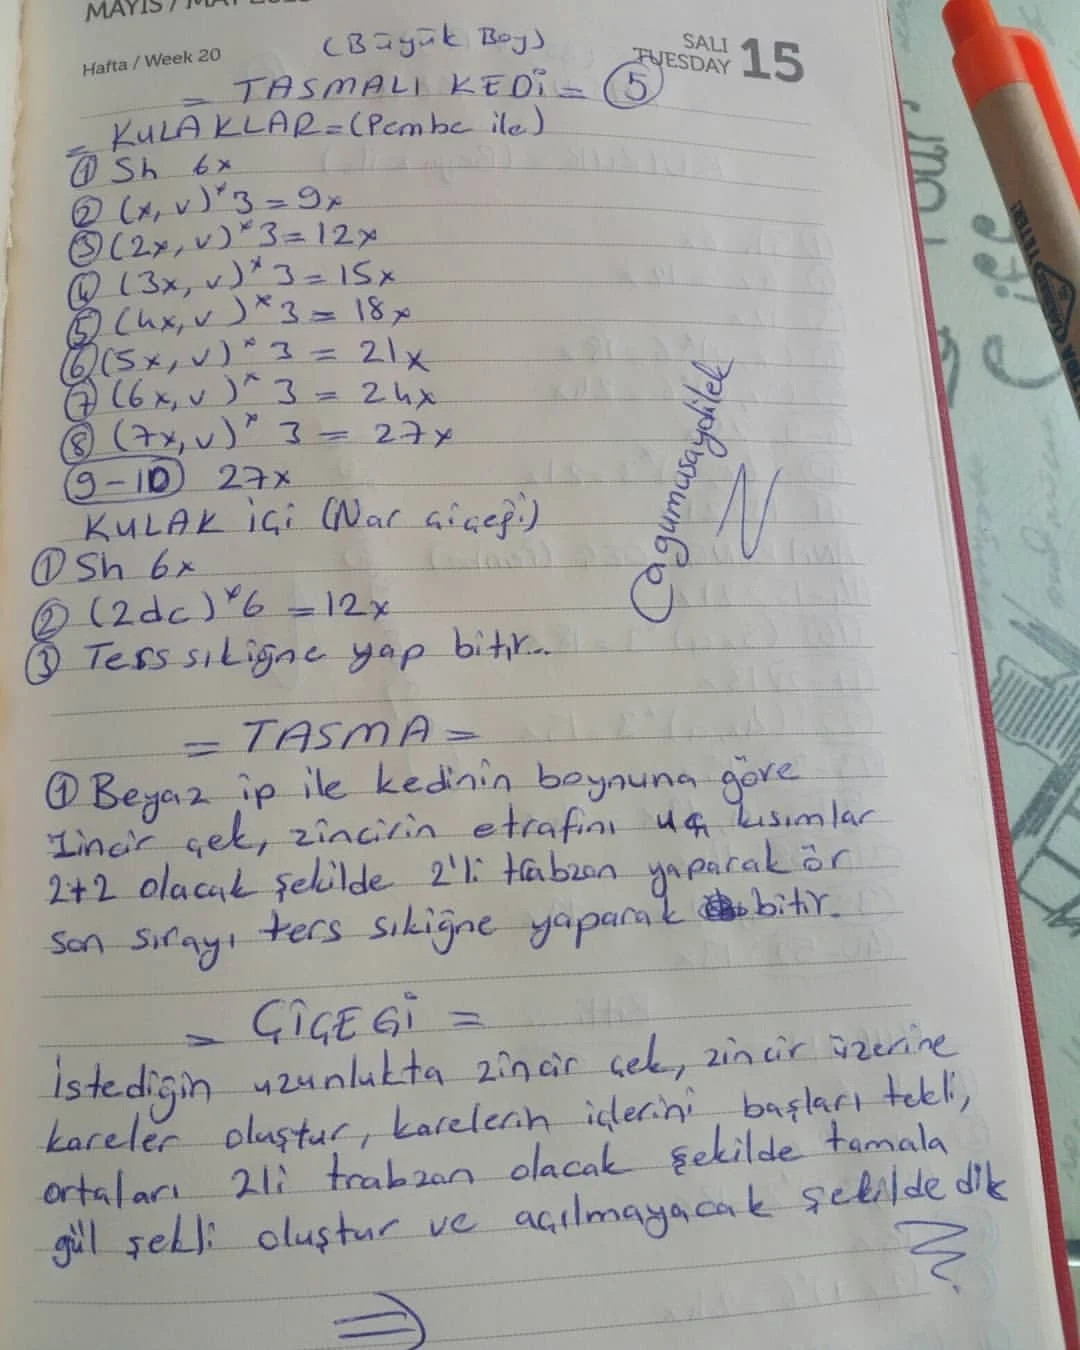 MAYIS / MAY
Hafta / Week 20
SALI
TUESDAY 15
(Büyük Boy)
= TASMALI KEDİ = ⑤
= KULAKLAR = (Pembe ile)
① Sh 6x
② (x, v)*3 = 9x
③ (2x, v)*3 = 12x
④ (3x, v)*3 = 15x
⑤ (4x, v)*3 = 18x
⑥ (5x, v)*3 = 21x
⑦ (6x, v)*3 = 24x
⑧ (7x, v)*3 = 27x
9-10 27x
KULAK İÇİ (Nar çiçeği)
① Sh 6x
② (2dc)*6 = 12x
③ Ters sıkiğne yap bitir...
Cagumusaydilek
= TASMA =
① Beyaz ip ile kedinin boynuna göre
zincir çek, zincirin etrafını uç kısımlar
2+2 olacak şekilde 2'li trabzan yaparak ör
son sırayı ters sıkiğne yaparak bitir.
= ÇİÇEĞİ =
İstediğin uzunlukta zincir çek, zincir üzerine
kareler oluştur, karelerin içlerini başları tekli,
ortaları 2li trabzan olacak şekilde tamala
gül şekli oluştur ve açılmayacak şekilde dik